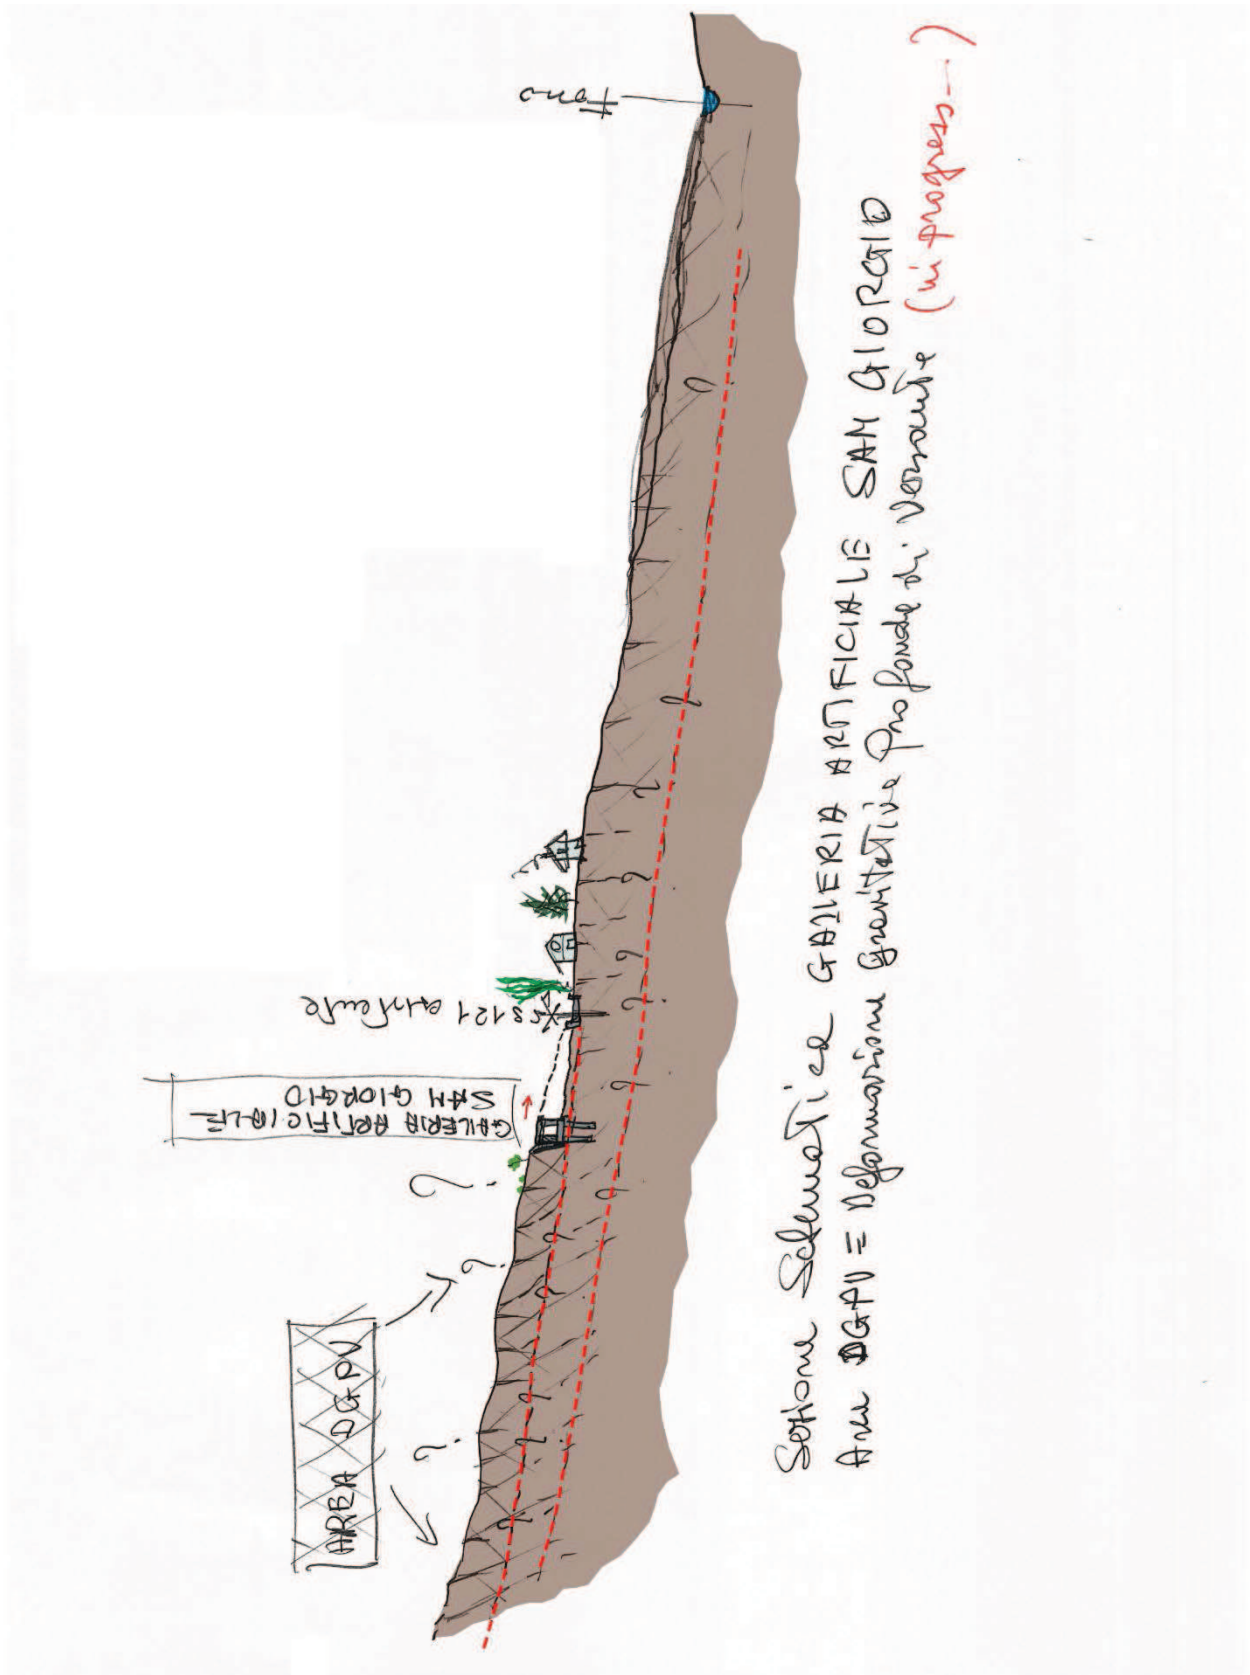 AREA DGPV
GALLERIA ARTIFICIALE
SAN GIORGIO
SS121 esistente
Sezione Schematica GALLERIA ARTIFICIALE SAN GIORGIO
Area DGPV = Deformazione Gravitativa Profonda di Versante (in progress--)